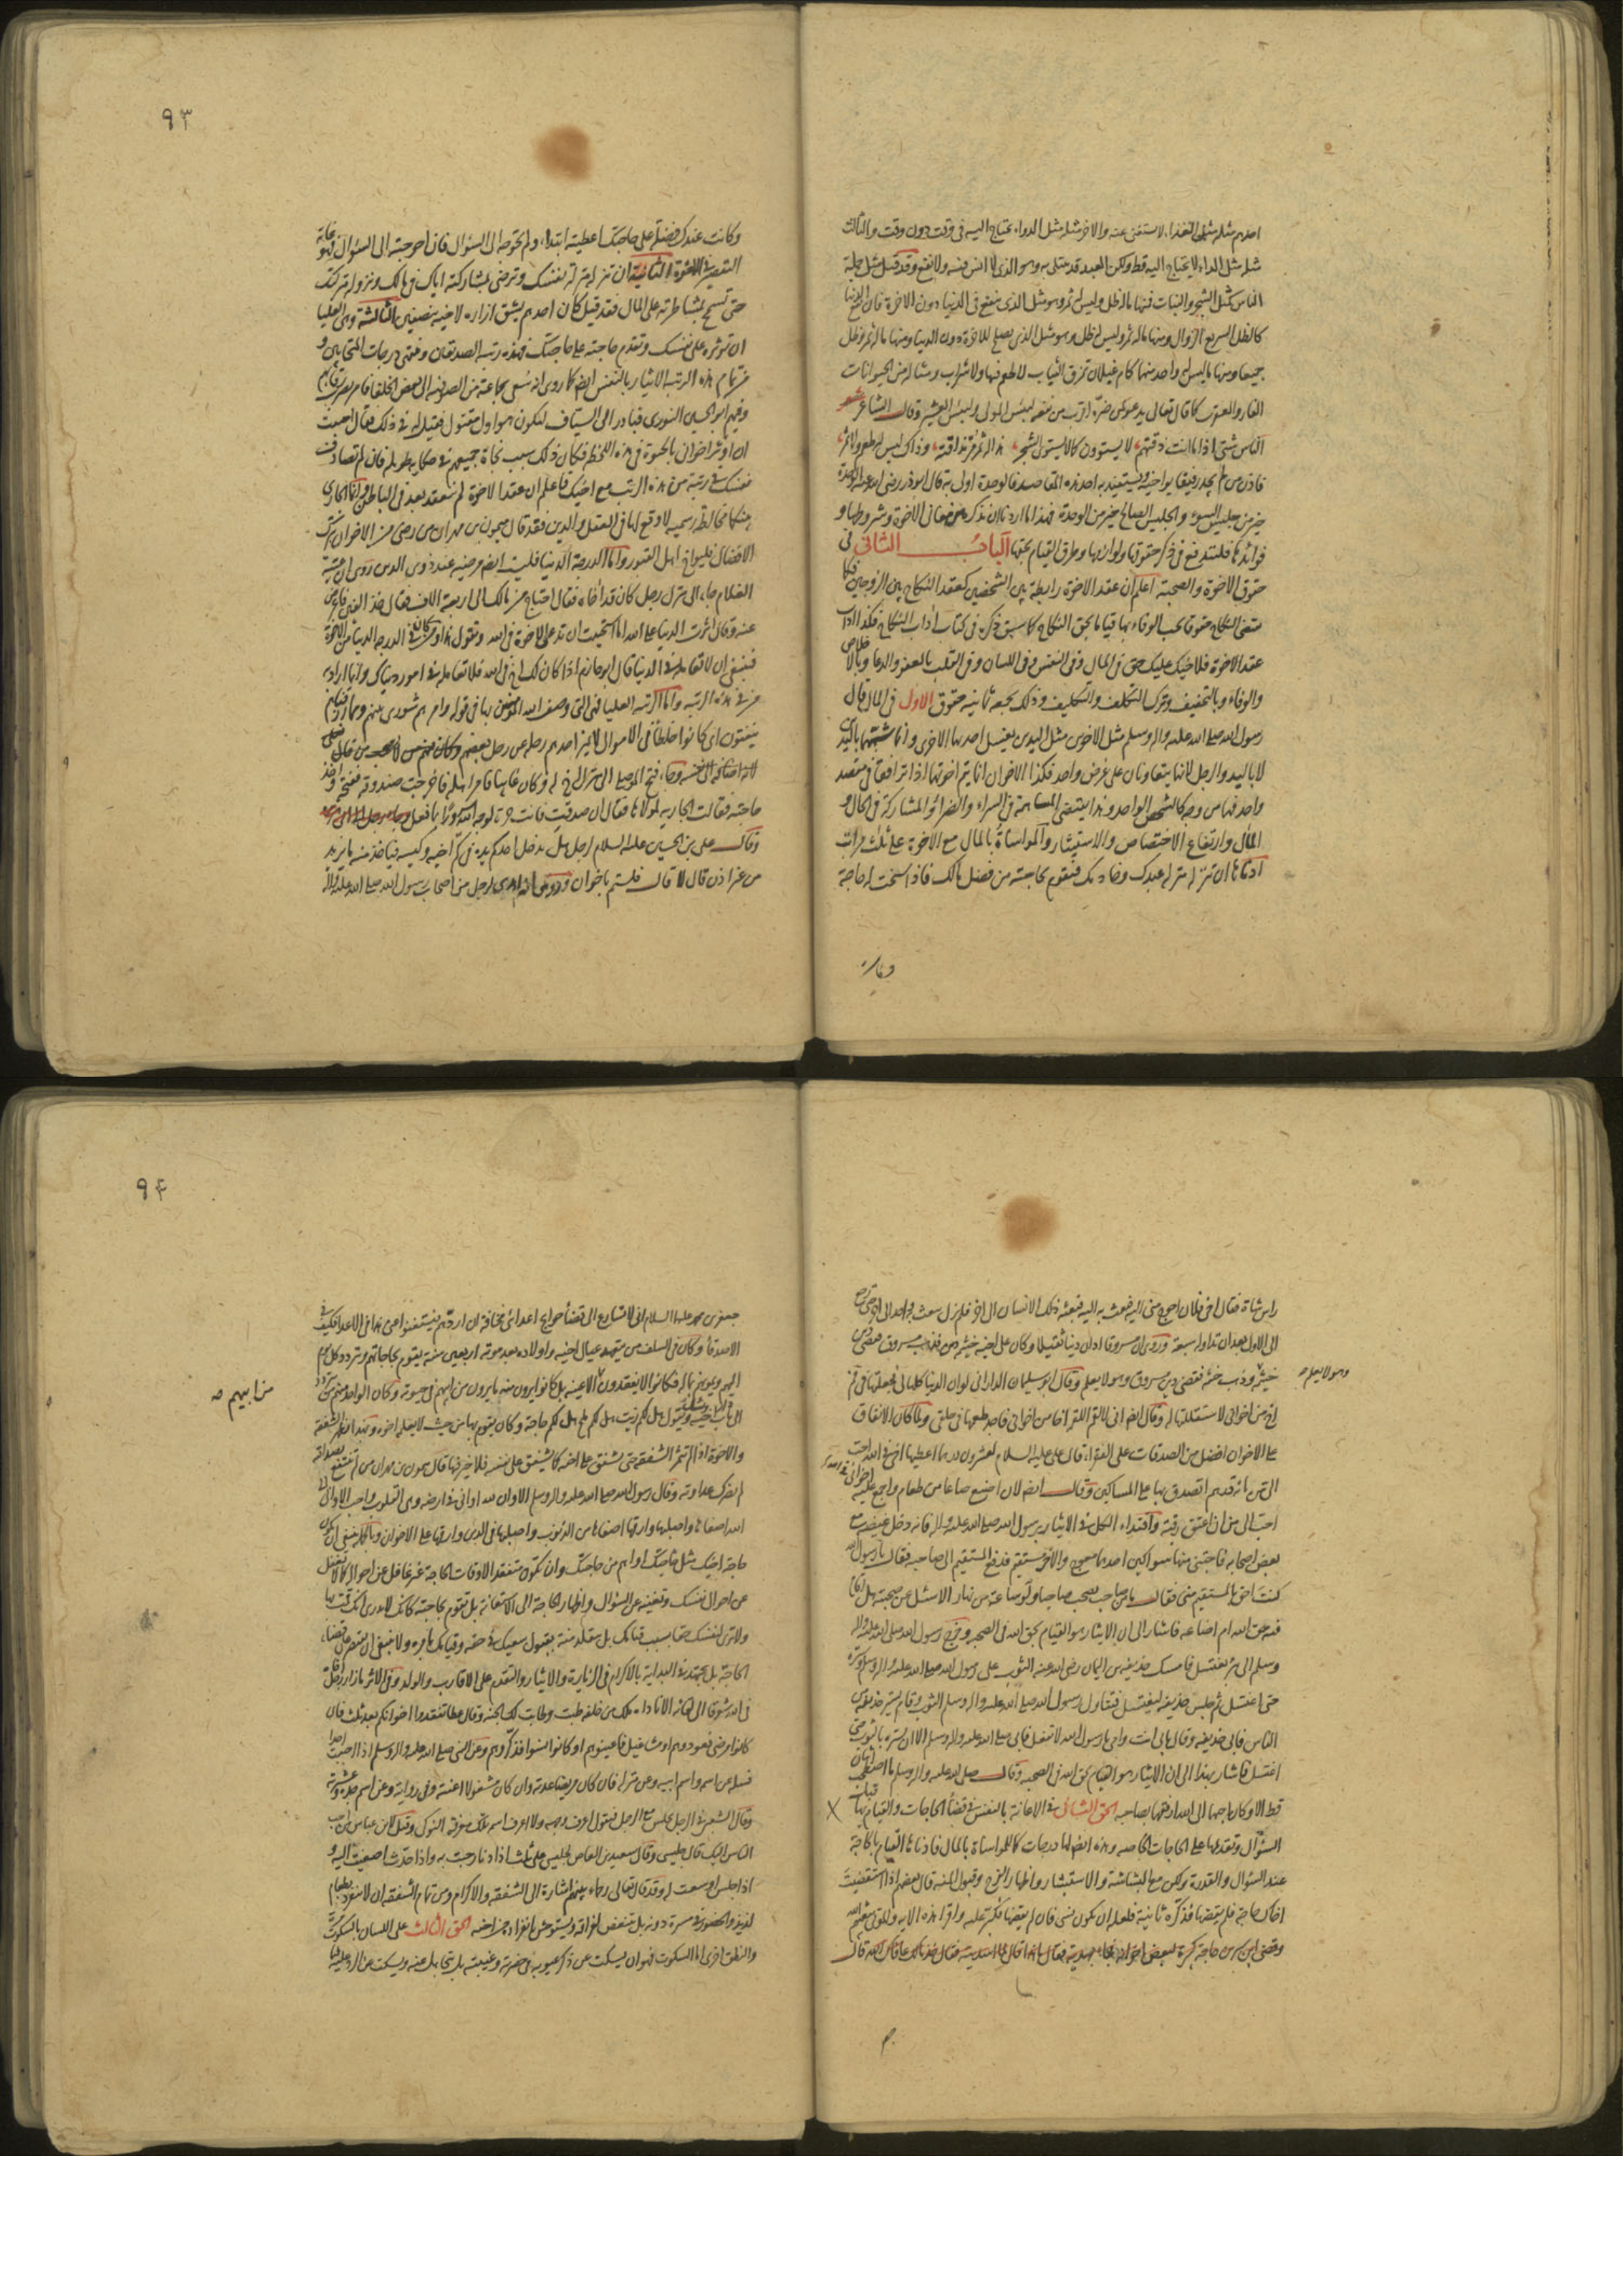 احدهم مثله مثل الغذاء لا يستغنى عنه والاخر مثله مثل الدواء يحتاج اليه فى وقت دون وقت والثالث
مثله مثل الداء لا يحتاج اليه قط ولكن العبد قد يبتلى به وهو الذى لا انس فيه ولا نفع وقد قيل مثل جملة
الناس كمثل الشجر والنبات فمنها ماله ظل وليس له ثمر وهو مثل الذى ينتفع به فى الدنيا دون الاخرة فان نفع الدنيا
كالظل السريع الزوال ومنها ماله ثمر وليس له ظل وهو مثل الذى يصلح للاخرة دون الدنيا ومنها ماله ثمر وظل
جميعا ومنها ما ليس له واحد منهما كام غيلان تمزق الثياب لا طعم فيها ولا شراب ومثاله من الحيوانات
الفار والعقرب كما قال تعالى يدعو لمن ضره اقرب من نفعه لبئس المولى ولبئس العشير وقال الشاعر شعر
الناس شتى اذا ما انت ذقتهم لا يستوون كما لا يستوى الشجر هذا له ثمر مر مذاقته وذاك ليس له طعم ولا ثمر
فاذن من لم يجد رفيقا يواخيه ويستفيد به احد هذه المقاصد فالوحدة اولى به قال ابو ذر رضى الله عنه الوحدة
خير من جليس السوء والجليس الصالح خير من الوحدة فهذا ما اردنا ان نذكره من معانى الاخوة وشروطها و
فوائدها فلنشرع فى ذكر حقوقها ولوازمها وطرق القيام بحقها الباب الثانى فى
حقوق الاخوة والصحبة اعلم ان عقد الاخوة رابطة بين الشخصين كعقد النكاح بين الزوجين فكما
يقتضى النكاح حقوقا يجب الوفاء بها قياما بحق النكاح كما سبق ذكره فى كتاب اداب النكاح فكذا
عقد الاخوة فلاخيك عليك حق فى المال وفى النفس وفى اللسان وفى القلب بالعفو والدعا وبالاخلاص
والوفاء وبالتخفيف وترك التكلف والتكليف وذلك يجمعه ثمانية حقوق الاول فى المال قال
رسول الله صلى الله عليه واله وسلم مثل الاخوين مثل اليدين يغسل احديهما الاخرى وانما شبههما باليدين
لا باليد والرجل لانهما يتعاونان على غرض واحد فكذا الاخوان انما يتم اخوتهما اذا ترافقا فى مقصد
واحد فهما من وجه كالشخص الواحد وهذا يقتضى المساهمة فى السراء والضراء والمشاركة فى المال و
المال وارتفاع الاختصاص والاستيثار والمواساة بالمال مع الاخوة على ثلث مراتب
ادناها ان تنزله منزلة عبدك وخادمك فتقوم بحاجته من فضل مالك فاذا سنحت له حاجة
وكانت
٩٣
وكانت عندك فضلة على حاجتك اعطيته ابتداء ولم تحوجه الى السؤال فان احوجته الى السؤال فهو غاية
التقصير فى الاخوة الثانية ان تنزله منزلة نفسك وترضى بمشاركته اياك فى مالك ونزوله منزلتك
حتى تسمح بمشاطرته على المال فقد قيل كان احدهم يشق ازاره لاخيه نصفين الثالثة وهى العليا
ان تؤثره على نفسك وتقدم حاجته على حاجتك فهذه رتبة الصديقين ومنتهى درجات المتحابين و
من تمام هذه الرتبة الايثار بالنفس ايضا كما روى انه سعى بجماعة من الصوفية الى بعض الخلفا فامر بضرب رقابهم
وفيهم ابو الحسين النورى فبادر الى السياف ليكون هو اول مقتول فقيل له فى ذلك فقال احببت
ان اوثر اخوانى بالحيوة فى هذه اللحظه فكان ذلك سبب نجاة جميعهم فى حكاية طويلة فان لم تصادف
نفسك فى رتبة من هذه الرتب مع اخيك فاعلم ان عقد الاخوة لم ينعقد بعد فى الباطن وانما الجارى
بينكما مخالطة رسمية لا وقع لها فى العقل والدين فقد قال ميمون بن مهران من رضى من الاخوان بترك
الافضال فليواخ اهل القبور واما الدرجة الدنيا فليست ايضا مرضية عند ذوى الدين روى ان عتبة
الغلام جاء الى منزل رجل كان قد اخاه فقال احتاج من مالك الى اربعة الاف فقال خذ الفين فاعرض
عنه وقال اثرت الدنيا على الله اما استحييت ان تدعى الاخوة فى الله وتقول هذا ومن كان فى الدرجة الدنيا من الاخوة
فينبغى ان لا تعامله فى الدنيا قال ابو حازم اذا كان لك اخ فى الله فلا تعامله فى امور دنياك وانما اراد به
من فى هذه الرتبه واما الرتبه العليا فهى التى وصف الله المؤمنين بها فى قوله وامرهم شورى بينهم ومما رزقناهم
ينفقون اى كانوا خلطاء فى الاموال لا يميز احدهم رحله عن رحل بعضهم وكان منهم من لا يصحب من قال نعلى
لانه اضافه الى نفسه وجاء فتح الموصلى الى منزل اخ له وكان غائبا فامر اهله فاخرجت صندوقه ففتحه واخذ
حاجته فقالت الجارية لمولاها فقال ان صدقت فانت حرة لوجه الله سرورا بما فعل
وقال على بن الحسين عليه السلام لرجل هل يدخل احدكم يده فى كم اخيه وكيسه فياخذ منه ما يريد
من غير اذن قال لا قال فلستم باخوان وروى انه اهدى لرجل من اصحاب رسول الله صلى الله عليه واله
راس شاة فقال اخى فلان احوج منى اليه فبعث به اليه فبعثه ذلك الانسان الى اخر فلم يزل يبعث به واحد الى اخر حتى رجع
الى الاول بعد ان تداوله سبعة وروى ان مسروقا ادان دينا ثقيلا وكان على اخيه خيثمة دين فذهب مسروق فقضى دين
خيثمة وذهب خيثمة فقضى دين مسروق وهو لا يعلم وقال ابو سليمان الدارانى لو ان الدنيا كلها لى فجعلتها فى فم
وهو لا يعلم صح
اخ من اخوانى لاستقللتها له وقال ايضا انى لالقم اللقمة اخا من اخوانى فاجد طعمها فى حلقى ولما كان الانفاق
على الاخوان افضل من الصدقات على الفقراء قال على عليه السلام لعشرون درهما اعطيها اخى فى الله احب
الى من مائة درهم اتصدق بها على المساكين وقال ايضا لان اصنع صاعا من طعام واجمع عليه اخوانى فى الله
احب الى من ان اعتق رقبة واقتداء الكل فى الايثار برسول الله صلى الله عليه واله فانه دخل غيضة مع
بعض اصحابه فاجتنى منها سواكين احدهما معوج والاخر مستقيم فدفع المستقيم الى صاحبه فقال يا رسول الله
كنت احق بالمستقيم منى فقال ما من صاحب يصحب صاحبا ولو ساعة من نهار الا سئل عن صحبته هل اقام
فيه حق الله ام اضاعه فاشار الى ان الايثار هو القيام بحق الله فى الصحبة وخرج رسول الله صلى الله عليه واله
وسلم الى بئر يغتسل فامسك حذيفة بن اليمان رضى الله عنه الثوب على رسول الله صلى الله عليه واله وسلم وستره
حتى اغتسل ثم جلس حذيفة ليغتسل فتناول رسول الله صلى الله عليه واله وسلم الثوب وقام يستر حذيفة من
الناس فابى حذيفة وقال بابى انت وامى يا رسول الله لا تفعل فابى صلى الله عليه واله وسلم الا ان يستره بالثوب حتى
اغتسل فاشار بهذا الى ان الايثار هو القيام بحق الله فى الصحبة وقال صلى الله عليه واله وسلم ما اصطحب اثنان
قط الا وكان احبهما الى الله ارفقهما بصاحبه الحق الثانى فى الاعانة بالنفس فى قضاء الحاجات والقيام بها قبل
السؤال وتقديمها على الحاجات الخاصه وهذه ايضا لها درجات كما للمواساة بالمال فادناها القيام بالحاجة
عند السؤال والقدرة ولكن مع البشاشة والاستبشار واظهار الفرح وقبول المنه قال بعضهم اذا استقضيت
اخاك حاجة فلم يقضها فذكره ثانية فلعله ان يكون نسى فان لم يقضها فكبر عليه واقرا هذه الايه والموتى يبعثهم الله
وقضى ابن شبرمة حاجة كبيرة لبعض اخوانه فجاء بهدية فقال ما هذا قال لما اسديته فقال خذ مالك عافاك الله قال
٩٤
جعفر بن محمد عليه السلام انى لاتسارع الى قضاء حوايج اعدائى مخافة ان اردهم فيستغنوا عنى هذا فى الاعداء فكيف فى
الاصدقاء وكان فى السلف من يتفقد عيال اخيه واولاده بعد موته اربعين سنة يقوم بحاجاتهم ويتردد كل يوم
اليهم ويمونهم بماله فكانوا لا يفقدون الا عينه بل كانوا يرون منه ما لا يرون من ابيهم فى حيوته وكان الواحد منهم يتردد
من ابيهم صح
الى باب اخيه ويقول هل لكم زيت هل لكم ملح هل لكم حاجة وكان يقوم بها من حيث لا يعلمه اخوه وبهذا تظهر الشفقة
والاخوة اذا لم تثمر الشفقة حتى يشفق على اخيه كما يشفق على نفسه فلا خير فيها قال ميمون بن مهران من لم تنتفع بصداقته
لم يضرك عداوته وقال رسول الله صلى الله عليه واله وسلم الا وان لله اوانى فى ارضه وهى القلوب واحب الاوانى الى
الله اصفاها واصلبها وارقها اصفاها من الذنوب واصلبها فى الدين وارقها على الاخوان وبالجملة ينبغى ان يكون
حاجة اخيك مثل حاجتك او اهم من حاجتك وان تكون متفقدا لاوقات الحاجة غير غافل عن احواله كما لا تغفل
عن احوال نفسك وتغنيه عن السؤال واظهار الحاجة الى الاستعانة بل تقوم بحاجته كانك لا تدرى انك قمت بها
ولا ترى لنفسك حقا بسبب قيامك بل تتقلد منة بقبول سعيك فى حقه وقيامك بامره ولا ينبغى ان يقتصر على قضاء
الحاجة بل يجتهد فى البداية بالاكرام فى الزيارة والايثار والتقديم على الاقارب والولد وفى الاثر ما زار رجل اخا
فى الله شوقا الى لقائه الا ناداه ملك من خلفه طبت وطابت لك الجنة وقال عطا تفقدوا اخوانكم بعد ثلث فان
كانوا مرضى فعودوهم او مشاغيل فاعينوهم او كانوا نسوا فذكروهم وعن النبى صلى الله عليه واله وسلم اذا احببت احدا
فسله عن اسمه واسم ابيه وعن منزله فان كان مريضا عدته وان كان مشغولا اعنته وفى رواية وعن اسم جده وعشيرته
وقال الشعبى فى الرجل يجالس الرجل فيقول اعرف وجهه ولا اعرف اسمه تلك معرفة النوكى وقيل لابن عباس من احب
الناس اليك قال جليسى وقال سعيد بن العاص لجليسى على ثلث اذا دنا رحبت به واذا حدث اصغيت اليه و
اذا جلس اوسعت له وقد قال تعالى رحماء بينهم اشارة الى الشفقه والاكرام ومن تمام الشفقه ان لا ينفرد بطعام
لذيذ او بحضور فى مسرة دونه بل يتنغص لفراقه ويستوحش بانفراده عن اخيه الحق الثالث على اللسان بالسكوت مرة
والنطق اخرى اما السكوت فهو ان يسكت عن ذكر عيوبه فى حضرته وغيبته بل يتجاهل عنه ويسكت عن الرد عليه